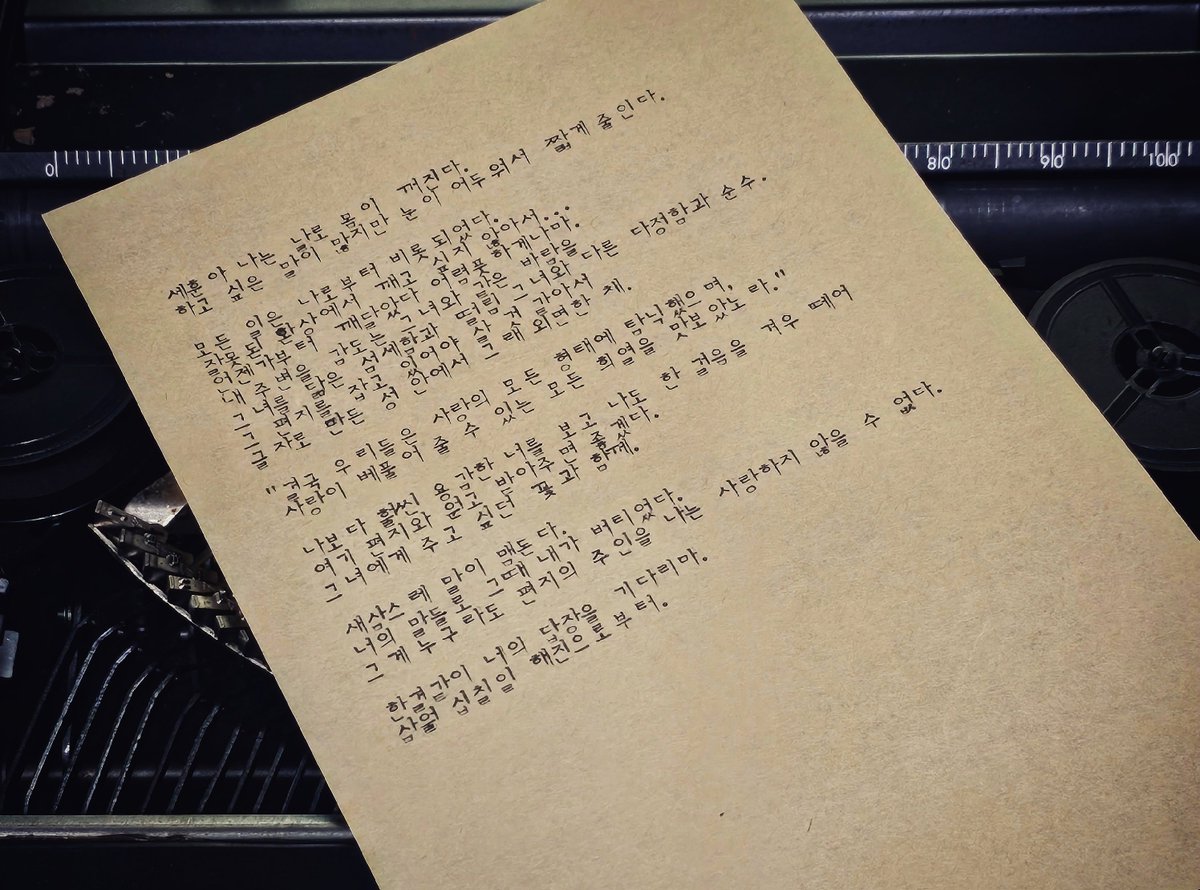 0 80 90 100
세훈아 나는 날로 몸이 깨진다.
하고 싶은 말이 많지만 눈이 어두워서 짧게 줄인다.
모든 일은 나로부터 비롯되었다.
잘못된 환상에서 깨고 싶지 않아서...
언젠가부터 깨달았다 어렴풋 하게나마.
내 주변을 감도는 그녀와 같은 바람을
그녀를 닮은 섬세함과 떨림 그녀와 다른 다정함과 순수.
그 편지를 잡고 있어야 살 거 같아서
글자로 만든 성 안에서 그래 외면한 채.
"결국 우리들은 사랑의 모든 형태에 탐닉했으며,
사랑이 베풀어 줄 수 있는 모든 희열을 맛보았노라."
나보다 훨씬 용감한 너를 보고 나도 한 걸음을 겨우 떼어
여기 편지와 원고 받아주면 좋겠다.
그녀에게 주고 싶던 꽃과 함께.
새삼스레 말이 맴돈다.
너의 말들로 그때 내가 버티었다.
그게 누구라도 편지의 주인을 나는 사랑하지 않을 수 없다.
한결같이 너의 답장을 기다리마.
삼월 십칠일 해진으로부터.